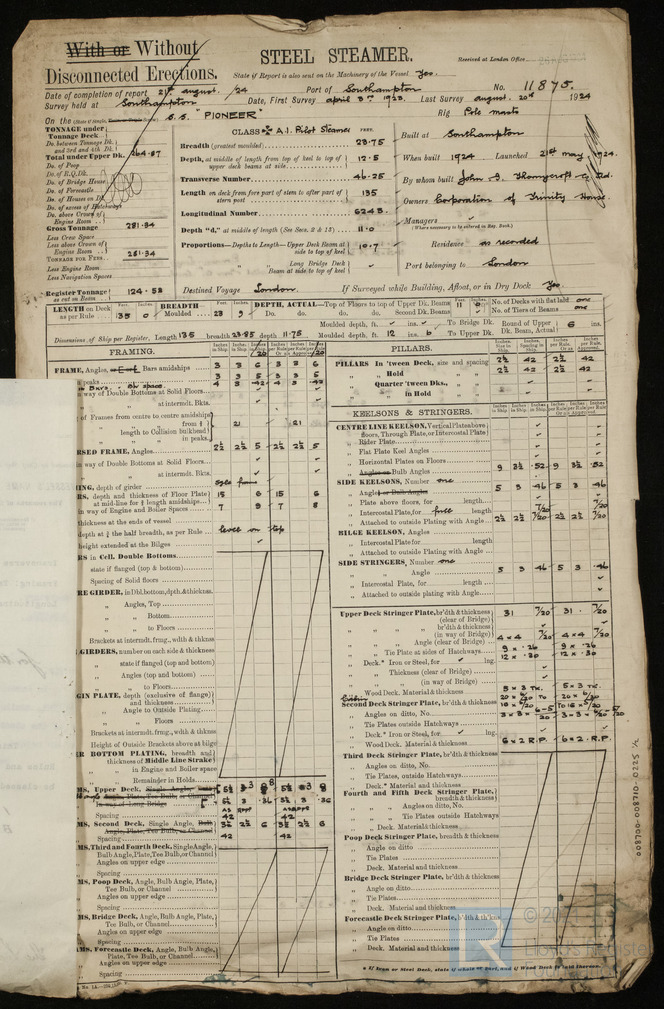 With or Without
Disconnected Erections.
STEEL STEAMER.
Received at London Office
State if Report is also sent on the Machinery of the Vessel Yes.
Date of completion of report 21st august /24 Port of Southampton No. 11875.
Survey held at Southampton Date, First Survey april 3rd 1923 Last Survey august. 20th 1924
On the S.S. "PIONEER" Rig Pole masts
TONNAGE under Tonnage Deck
Do between Tonnage Dk. and 3rd and 4th Dk.
Total under Upper Dk. 264.87
Do. of Poop
Do. of R.Q.Dk.
Do. of Bridge House
Do. of Forecastle
Do. of Houses on Dk.
Do. of excess of Hatchways
Do. above Crown of Engine Room
Gross Tonnage 281.34
Less Crew Space
Less above Crown of Engine Room
TONNAGE FOR FEES 281.34
Less Engine Room
Less Navigation Spaces
Register Tonnage as cut on Beam 124.58
CLASS ✠ A.1. Pilot Steamer FEET.
Breadth (greatest moulded) 23.75
Depth, at middle of length from top of keel to top of upper deck beams at side 12.5
Transverse Number 46.25
Length on deck from fore part of stem to after part of stern post 135
Longitudinal Number 6243.
Depth "d," at middle of length (See Secs. 2 & 13) 11.0
Proportions—Depths to Length—Upper Deck Beam at side to top of keel 10.7
" Long Bridge Deck Beam at side to top of keel
Built at Southampton
When built 1924 Launched 21st may, 1924.
By whom built John I. Thornycroft & Co. Ltd.
Owners Corporation of Trinity House.
Managers
(Where necessary to be entered in Reg. Book.)
Residence as recorded
Port belonging to London
Destined Voyage London. If Surveyed while Building, Afloat, or in Dry Dock Yes.
LENGTH on Deck as per Rule 135 0
BREADTH— Moulded 23 9
DEPTH, ACTUAL—Top of Floors to top of Upper Dk. Beams
Do. Do. Do. Second Dk. Beams
No. of Decks with flat laid one
No. of Tiers of Beams one
Dimensions of Ship per Register, Length 135 breadth 23.85 depth 11.75
Moulded depth, ft. ins. To Bridge Dk.
Moulded depth, ft. 12 ins. 6 To Upper Dk.
Round of Upper Dk. Beams, Actual 6 ins.
FRAMING.
FRAME, Angles, Bars amidships 3 3 6 3 3 6
peaks 3 3 5 3 3 5
way of Double Bottoms at Solid Floors
" at intermdt. Bkts.
of Frames from centre to centre amidships 21 21
length to Collision bulkhead
in peaks
RSED FRAME, Angles 2½ 2½ 5 2½ 2½ 5
in way of Double Bottoms at Solid Floors
" at intermdt. Bkts.
NG, depth of girder
RS, depth and thickness of Floor Plate at mid-line for ½ length amidships 15 6 15 6
in way of Engine and Boiler Spaces 7 9 7 8
thickness at the ends of vessel
depth at ½ the half breadth, as per Rule level on top
height extended at the Bilges
RS in Cell. Double Bottoms
state if flanged (top & bottom)
Spacing of Solid floors
RE GIRDER, in Dbl. bottom, dpth. & thickness
" Angles, Top
" Bottom
" to Floors
Brackets at intermdt. frmg., wdth & thkns
GIRDERS, number on each side & thickness
state if flanged (top and bottom)
Angles (top and bottom)
" to Floors
GIN PLATE, depth (exclusive of flange) and thickness
Angle to Outside Plating
" Floors
Brackets at intermdt. frmg., wdth & thkns
Height of Outside Brackets above at bilge
R BOTTOM PLATING, breadth and thickness of Middle Line Strake
in Engine and Boiler space
Remainder in Holds
MS, Upper Deck
Spacing 42 42
MS, Second Deck, Single Angle, 3½ 2½ 6 3½ 2½ 6
Spacing 42 42
MS, Third and Fourth Deck, Single Angle, Bulb Angle, Plate, Tee Bulb, or Channel
Angles on upper edge
Spacing
MS, Poop Deck, Angle, Bulb Angle, Plate, Tee Bulb, or Channel
Angles on upper edge
Spacing
MS, Bridge Deck, Angle, Bulb Angle, Plate, Tee Bulb, or Channel
Angles on upper edge
Spacing
MS, Forecastle Deck, Angle, Bulb Angle, Plate, Tee Bulb, or Channel
Angles on upper edge
Spacing
PILLARS.
PILLARS In 'tween Deck, size and spacing 2½ 42 2½ 42
" Hold 2½ 42 2½ 42
Quarter 'tween Dks., "
" in Hold
KEELSONS & STRINGERS.
CENTRE LINE KEELSON, Vertical Plate above floors, Through Plate, or Intercostal Plate
" Rider Plate
" Flat Plate Keel Angles
" Horizontal Plates on Floors
" Angles or Bulb Angles 9 3½ .52 9 3½ .52
SIDE KEELSONS, Number one
" Angles or Bulb Angles 5 3 .46 5 3 .46
" Plate above floors, for length
" Intercostal Plate, for full length 7/20 7/20
" Attached to outside Plating with Angle 2½ 2½ 7/20 2½ 2½ 7/20
BILGE KEELSON, Angles
" Intercostal Plate for length
" Attached to outside Plating with Angle
SIDE STRINGERS, Number one
" Angle 5 3 .46 5 3 .46
" Intercostal Plate, for length
" Attached to outside plating with Angle
Upper Deck Stringer Plate, br'dth & thickness (clear of Bridge) 31 7/20 31 7/20
" br'dth & thickness (in way of Bridge)
" Angle (clear of Bridge) 4 x 4 7/20 4 x 4 7/20
" Tie Plate at sides of Hatchways 9 x .26 9 x .26
Deck.* Iron or Steel, for lng. 12 x .30 12 x .30
" Thickness (clear of Bridge)
" (in way of Bridge)
Wood Deck. Material & thickness 5 x 3 TK. 5 x 3 TK.
Second Deck Stringer Plate, br'dth & thickness
" Angles on ditto, No.
" Tie Plates outside Hatchways
" Deck.* Iron or Steel, for lng.
" Wood Deck. Material & thickness 6 x 2 R.P. 6 x 2 R.P.
Third Deck Stringer Plate, br'dth & thickness
" Angles on ditto, No.
" Tie Plates, outside Hatchways
" Deck.* Material and thickness
Fourth and Fifth Deck Stringer Plate, breadth & thickness
" Angles on ditto, No.
" Tie Plates outside Hatchways
" Deck. Material & thickness
Poop Deck Stringer Plate, breadth & thickness
" Angle on ditto
" Tie Plates
" Deck, Material and thickness
Bridge Deck Stringer Plate, br'dth & thickness
" Angle on ditto
" Tie Plates
" Deck. Material and thickness
Forecastle Deck Stringer Plate, br'dth & thickness
" Angle on ditto
" Tie Plates
" Deck, Material and thickness
* If Iron or Steel Deck, state if whole or part, and if Wood Deck is laid thereon.
008700-008710-0225 ½